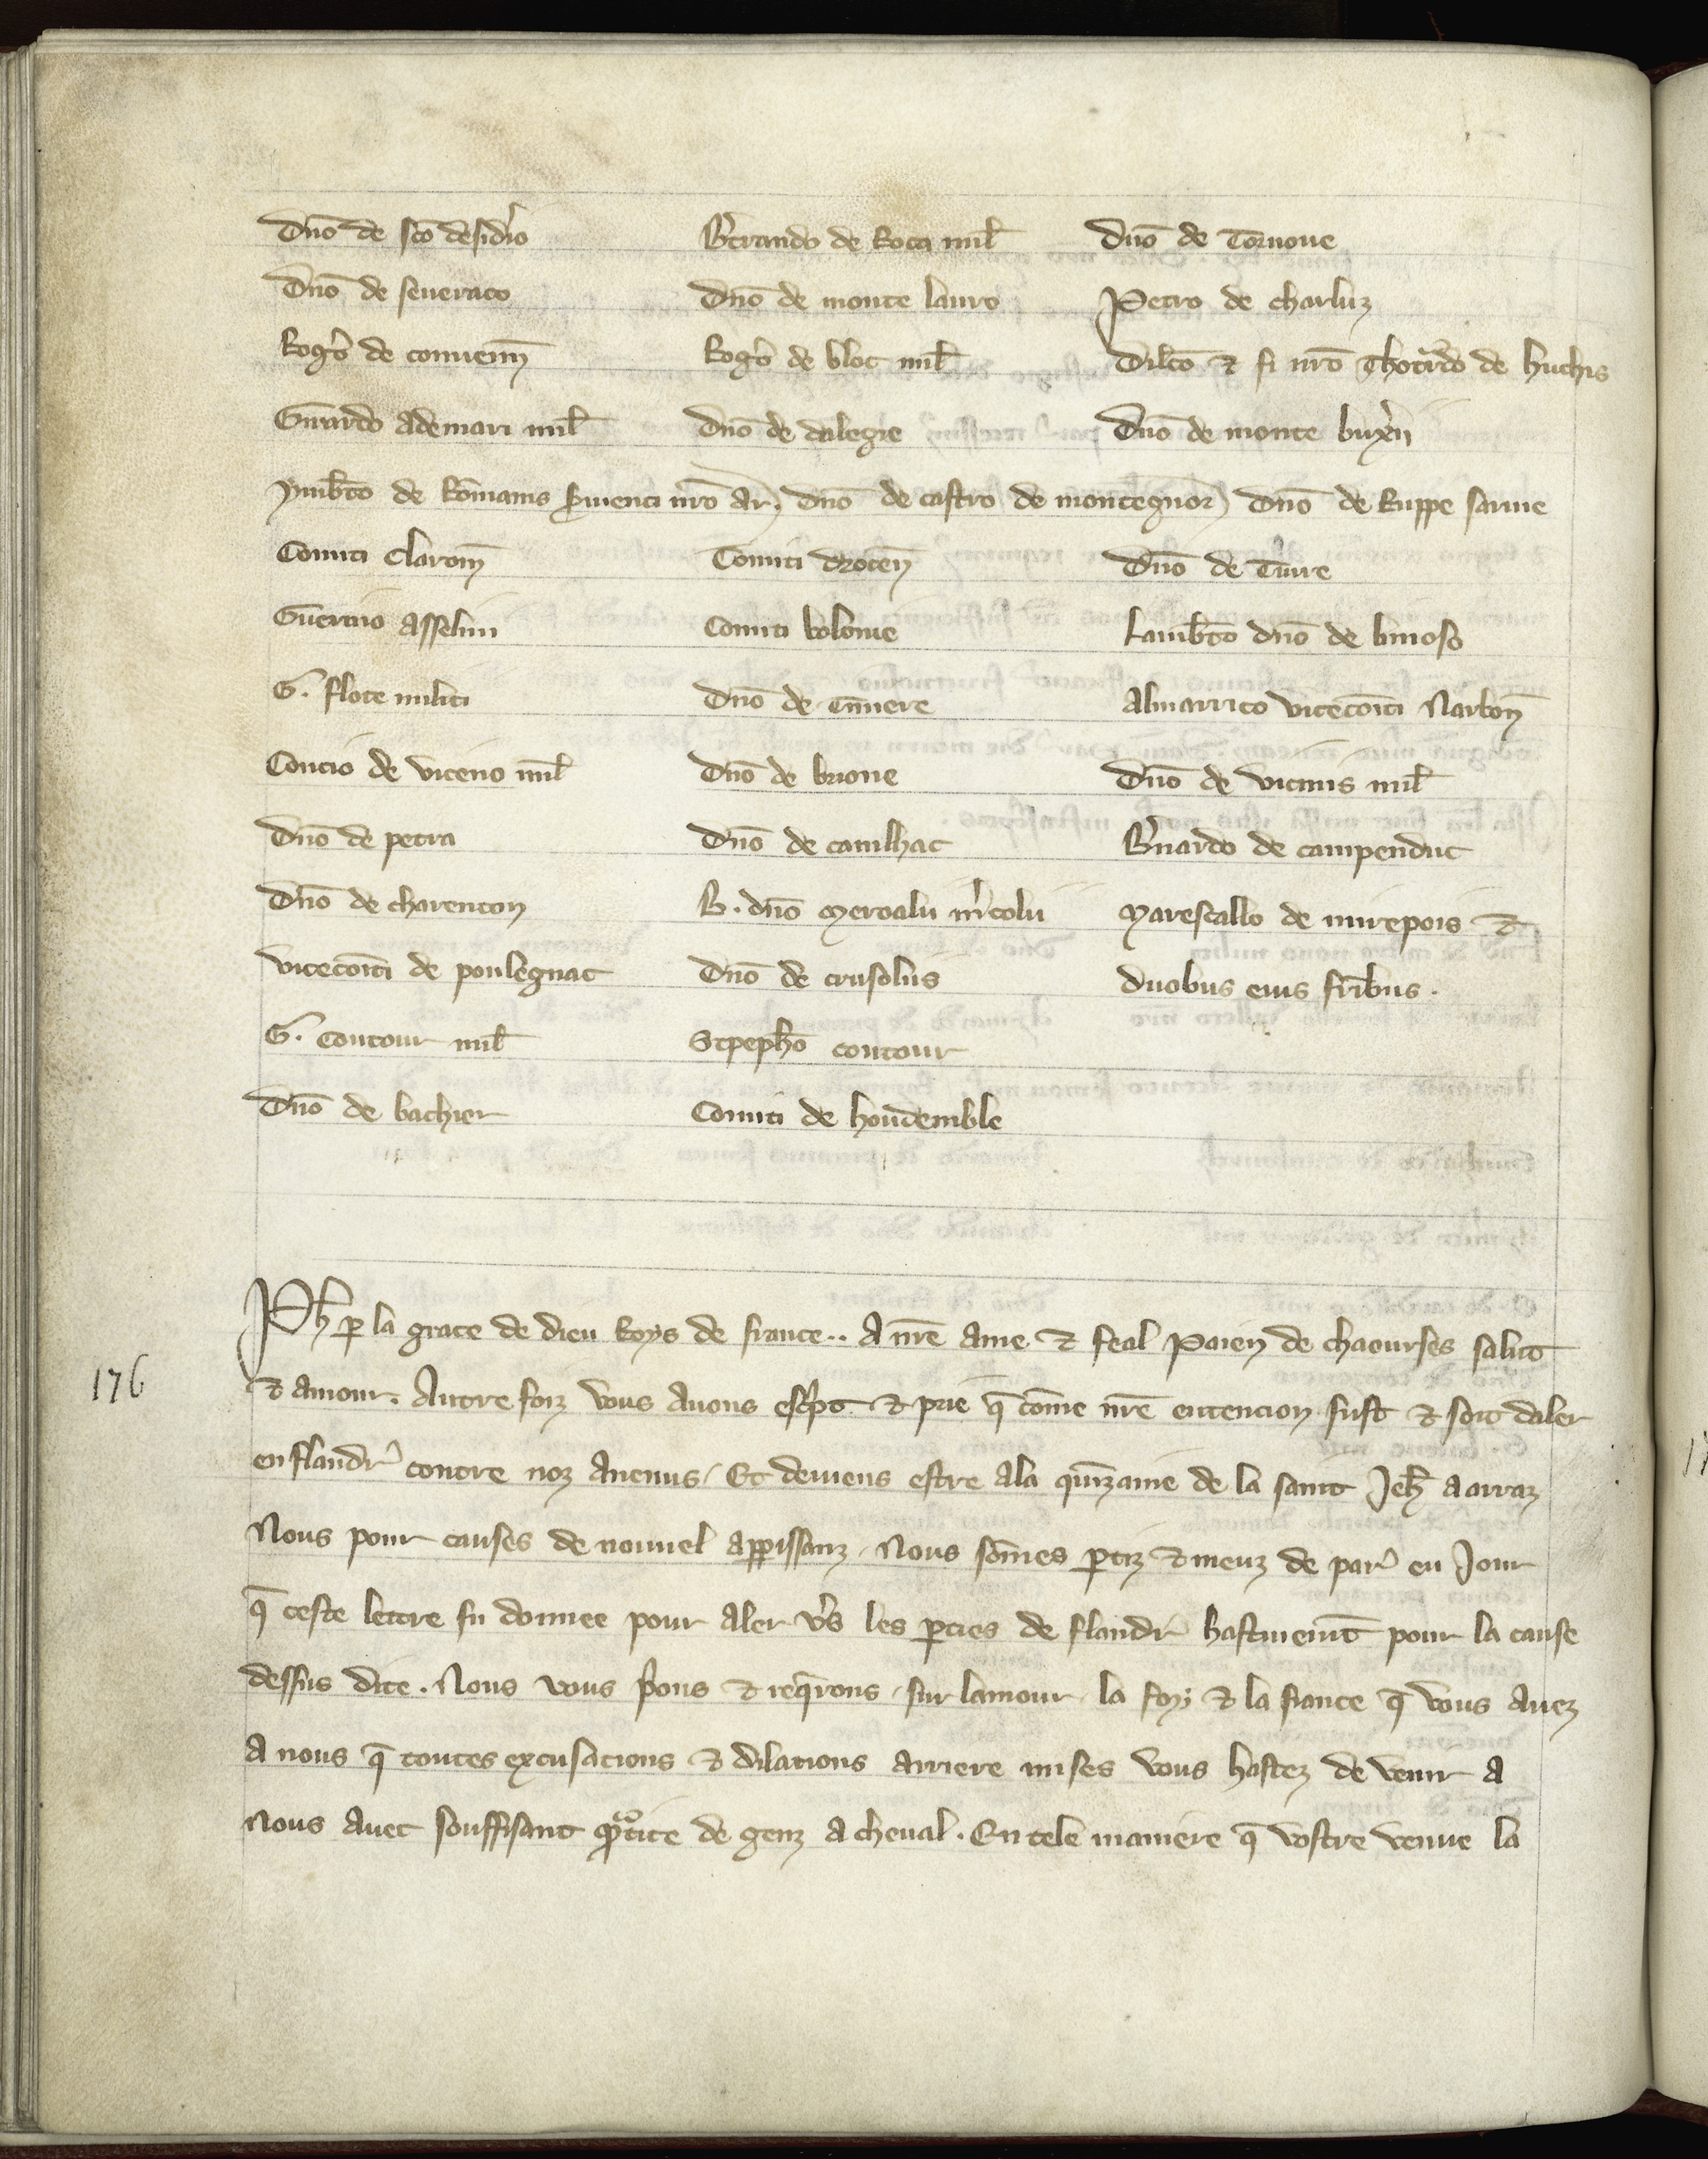 Dn̄o de sc̄o desid̾io B̾trando de Roca mil̄ Dn̄o de Tornone
Dn̄o de seueraco Dn̄o de monte lauro Petro de charluz
Rog̾o de conuen̄ Rog̾o de blot mil̄ Dilc̄o ⁊ fi nr̄o Thotardo de huchis
Girardo Ademari mil̄ Dn̄o de dalegre Dn̄o de monte bux̾ii
ymb̄to de Romanis s̾uienti nr̄o ar. Dn̄o de castro de montegnor Dn̄o de Ruppe sarine
Comiti Clarom̄ Comiti drocen̄ Dn̄o de Turre
Guerino Asselini Comiti bolonie Lamb̄to dn̄o de limoso
G. flote militi Dn̄o de Tiniere Almarrico vicecōiti Narbon̄
Concio de viceno mil̄ Dn̄o de brione Dn̄o de vicinis mil̄
Dn̄o de petra Dn̄o de canilhac B̾nardo de campenduc
Dn̄o de charenton B. dn̄o Mercalii m̾colii Marescallo de mirepois ⁊
vicecōiti de poulegnac Dn̄o de crusolus duobus eius fr̄ibus.
G. contour mil̄ Stpeph̄o contour
Dn̄o de bachier Comiti de houdemble
Ph̄ p̱ la grace de dieu Roys de france.. A nr̄e Ame ⁊ feal Paien de chaourses salut
176
⁊ amour. Autre foiz vous Auons esc̾pt ⁊ prie q̄ cōme nr̄e entencion fust ⁊ soit daler
en flandr̾ contre noz Anemis / Et deuiens estre ala quīzaine de la saint Jeh̄ a arraz
Nous pour causes de nouuel apparissanz, Nous sōmes p̱tiz ⁊ meuz de par̾ eu Jour
q̄ ceste lettre fu donnee pour Aler v̾s les p̱ties de flandr̾ hastiuem̄t pour la cause
dessus dite. Nous vous p̾ons ⁊ req̄rons, sur lamour, la foy, ⁊ la fiance q̄ vous Auez
a nous q̄ toutes excusacions ⁊ dilacions arriere mises vous hastez de venir a
nous auec souffisant q̾ntite de genz a cheual. En tele maniere q̄ vostre venue la